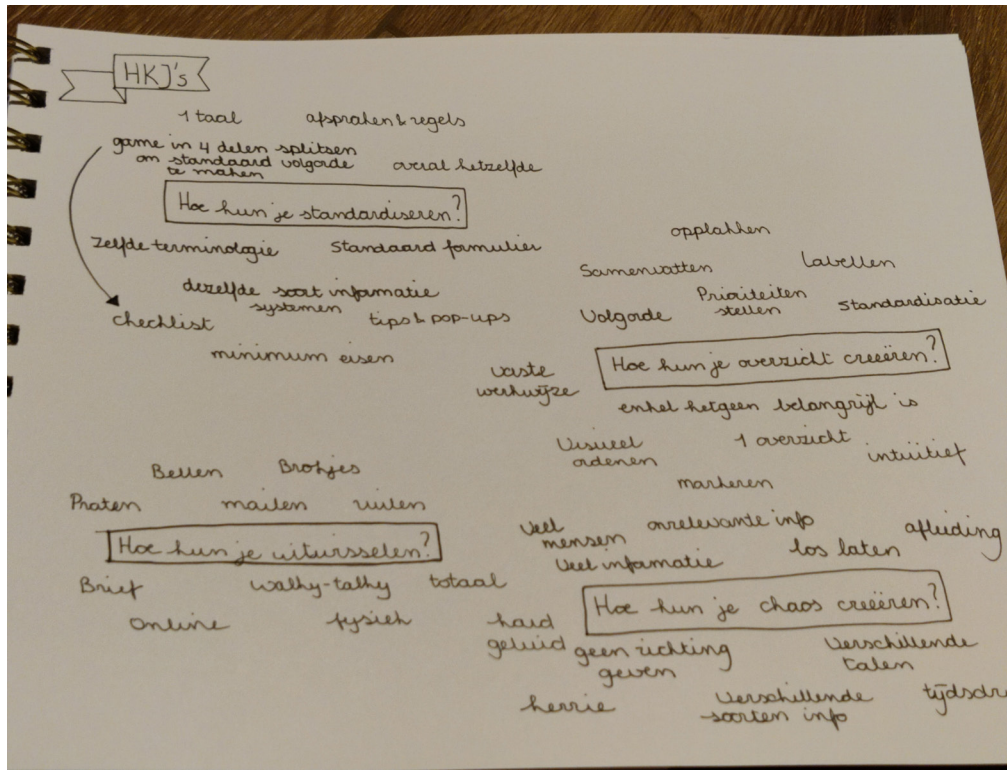 HKJ's
1 taal
afspraken & regels
game in 4 delen splitsen
om standaard volgorde
te maken
overal hetzelfde
Hoe kun je standardiseren?
Zelfde terminologie
Standaard formulier
dezelfde soort informatie
systemen
checklist
tips & pop-ups
minimum eisen
opplakken
Samenvatten
Labellen
Volgorde
Prioriteiten
stellen
Standardisatie
Hoe kun je overzicht creeëren?
vaste
werkwijze
enkel hetgeen belangrijk is
Visueel
ordenen
1 overzicht
intuïtief
markeren
Bellen
Brokjes
Praten
mailen
ruilen
Hoe kun je uitursselen?
Brief
walky-talky
totaal
Online
fysiek
Veel
mensen
onrelevante info
afleiding
Veel informatie
los laten
Hoe kun je chaos creeëren?
hard
geluid
geen richting
geven
Verschillende
talen
herrie
Verschillende
soorten info
tijdsdr